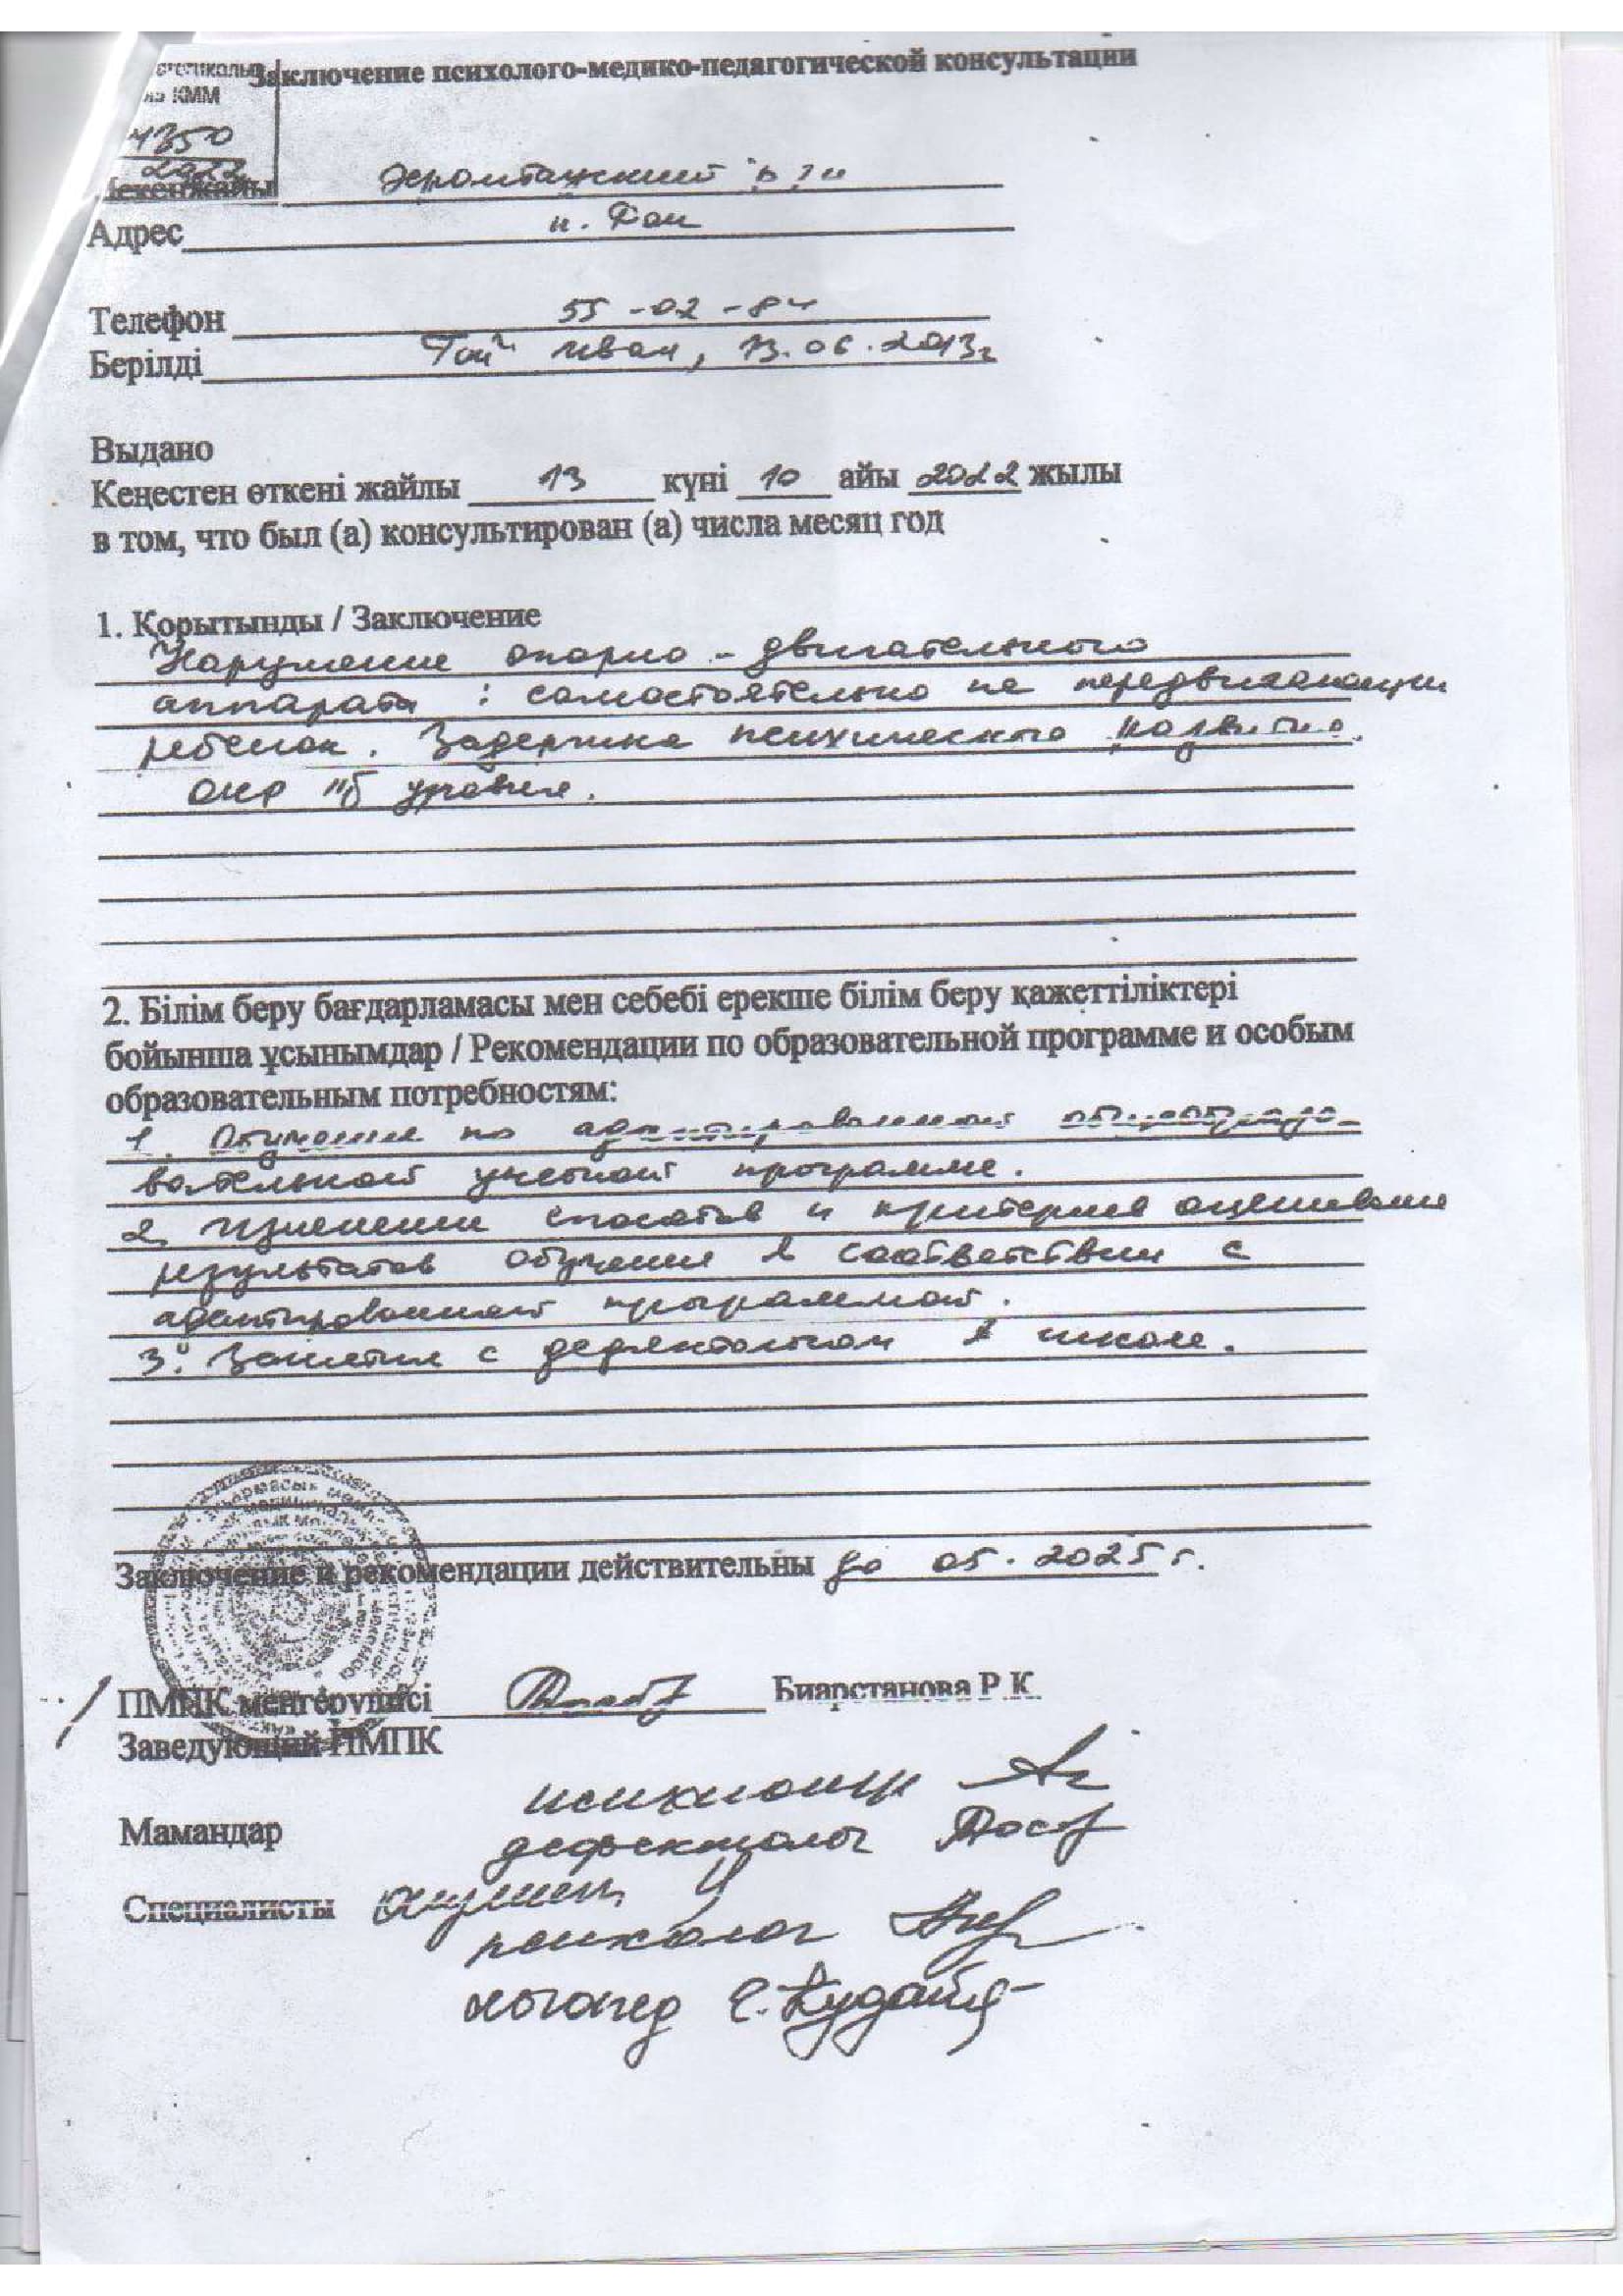 Заключение психолого-медико-педагогической консультации
КММ
Мекенжайы
Адрес
Телефон 55-02-84
Берілді Гай Иван, 13.06.2013г
Выдано
Кеңестен өткені жайлы 13 күні 10 айы 2022 жылы
в том, что был (а) консультирован (а) числа месяц год
1. Қорытынды / Заключение
Нарушение опорно-двигательного
аппарата: самостоятельно не передвигающийся
ребенок. Задержка психического развития.
ОНР III уровня.
2. Білім беру бағдарламасы мен себебі ерекше білім беру қажеттіліктері
бойынша ұсынымдар / Рекомендации по образовательной программе и особым
образовательным потребностям:
1. Обучение по адаптированной общеобразо-
вательной учебной программе.
2. Изменение способов и критериев оценивания
результатов обучения в соответствии с
адаптированной программой.
3. Занятия с дефектологом в школе.
Заключение и рекомендации действительны до 05.2025 г.
ПМПК меңгерушісі Биарстанова Р.К.
Заведующий ПМПК
Мамандар
дефектолог
Специалисты
психолог
логопед